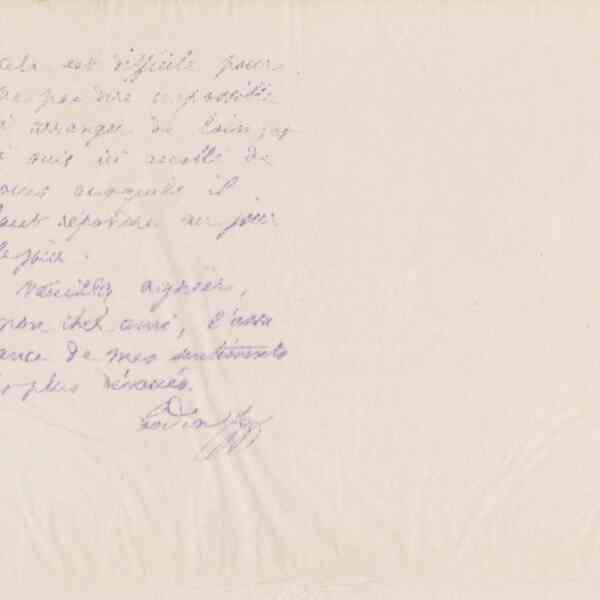 cela est difficile pour
ne pas dire impossible
à arranger de loin;
suis ici accablé de
auxquels il
faut répondre au jour
le jour.
Veuillez agréer,
mon cher ami, l'assu
rance de mes sentiments
les plus dévoués.
Godin